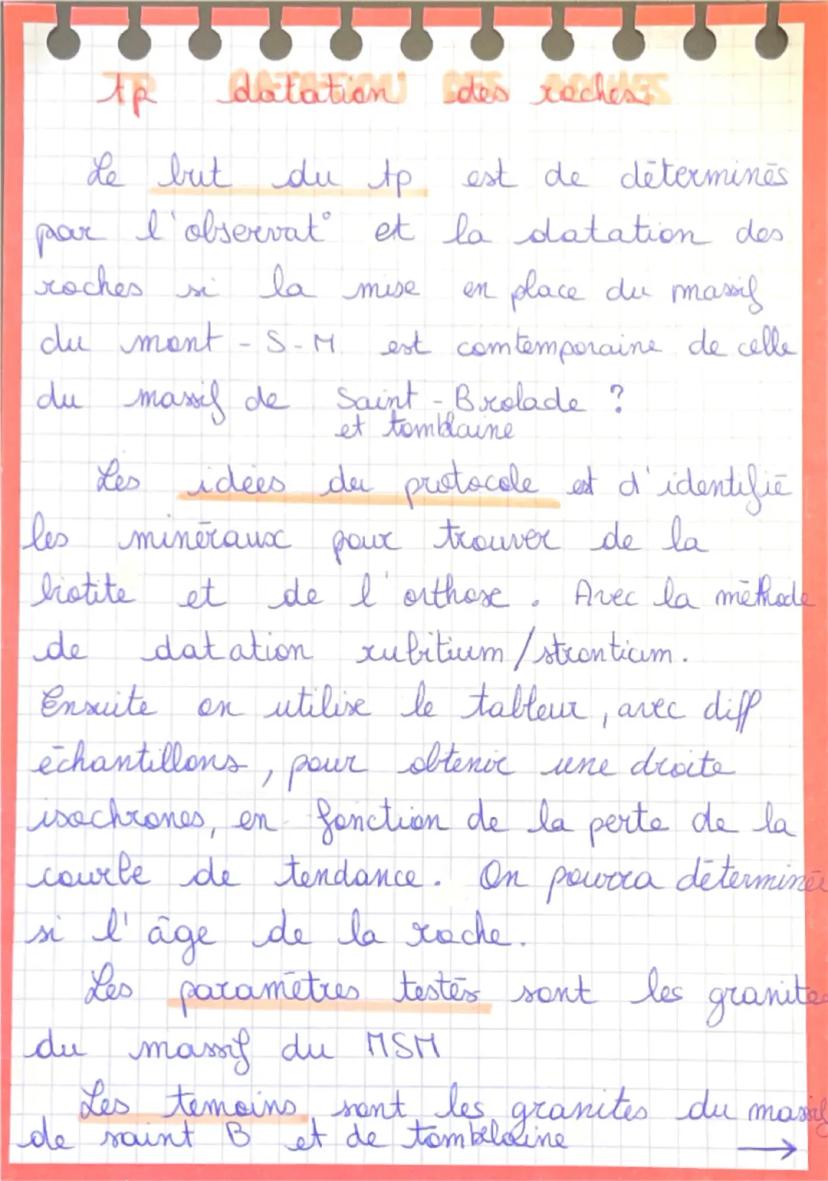 tp datation des roches
Le but du tp est de déterminés
par l'observat° et la datation des
roches si la mise en place du massif
du mont-S-M est comtemporaine de celle
du massif de Saint-Brolade ?
et tomblaine
Les idées du protocole est d'identifié
les minéraux pour trouver de la
biotite et de l'orthose. Avec la méthode
de datation rubitium/strontium.
Ensuite on utilise le tableur, avec diff
échantillons, pour obtenir une droite
isochrones, en fonction de la perte de la
courbe de tendance. On pourra déterminé
si l'âge de la roche.
Les paramètres testés sont les granites
du massif du MSM
Les temoins sont les granites du massif
de saint B et de tombelaine →